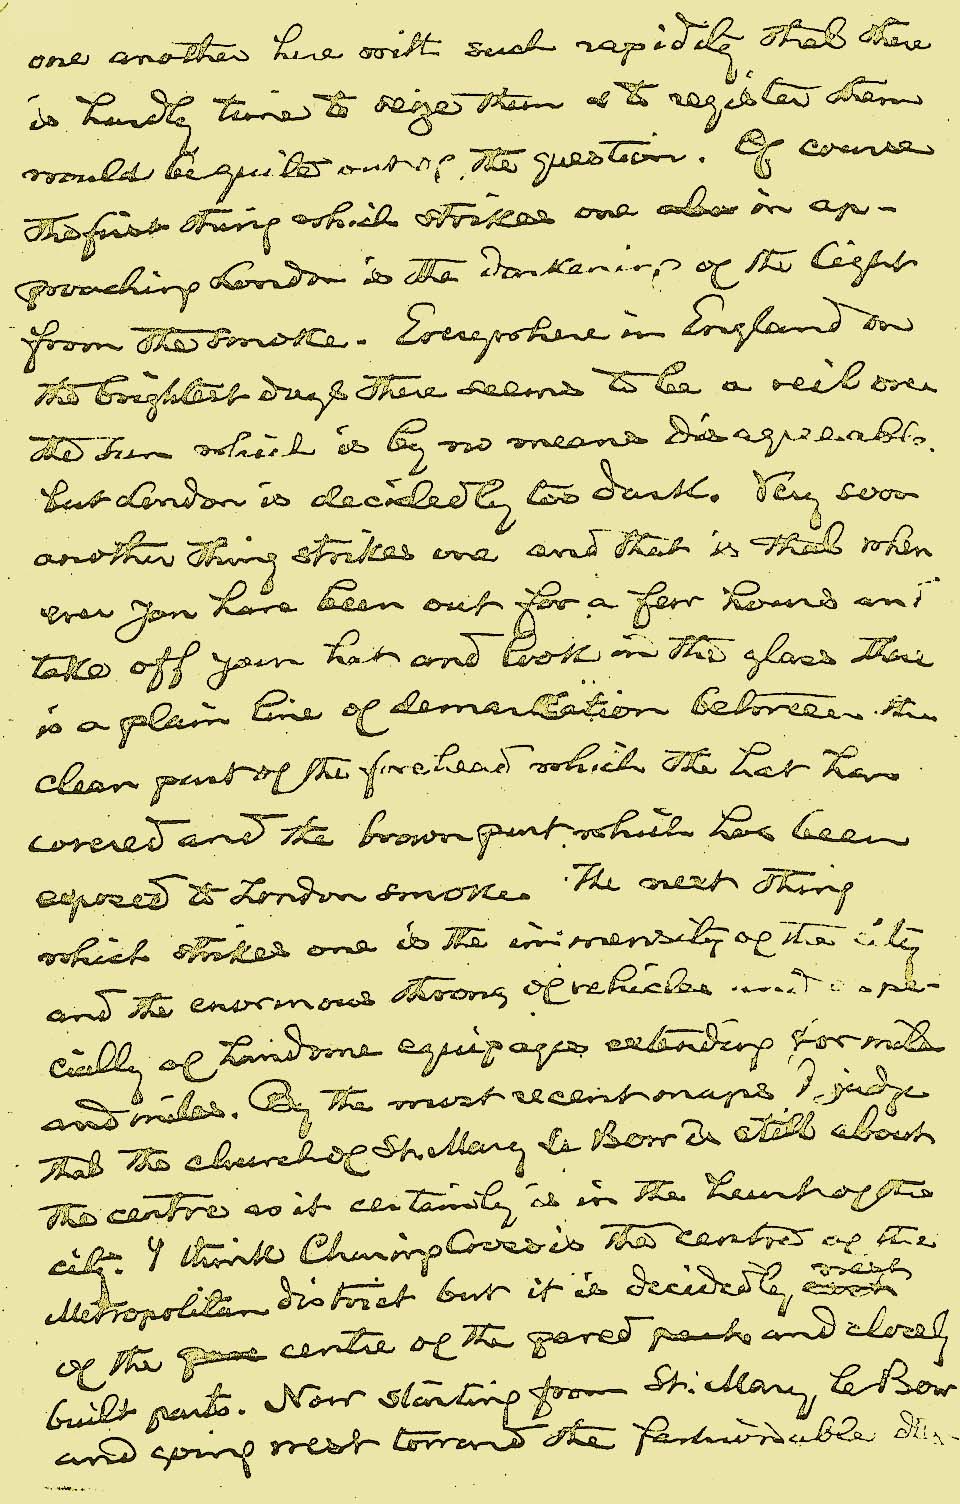 one another here with such rapidity that there
is hardly time to seize them & to register them
would be quite out of the question. Of course
the first thing which strikes one also in ap-
proaching London is the darkening of the light
from the smoke. Everywhere in England on
the brightest days there seems to be a veil over
the sun which is by no means disagreeable.
but London is decidedly too dark. Very soon
another thing strikes one and that is that when
ever you have been out for a few hours and
take off your hat and look in the glass there
is a plain line of demarcation between the
clean part of the forehead which the hat has
covered and the brown part which has been
exposed to London smoke. The next thing
which strikes one is the immensity of the city
and the enormous throng of vehicles and espe-
cially of handsome equipages extending for miles
and miles. By the most recent maps I judge
that the church of St. Mary le Bow is still about
the centre as it certainly is in the heart of the
city. I think Charing Cross is the centre of the
Metropolitan district but it is decidedly west
of the centre of the paved parts and closely
built parts. Now starting from St. Mary le Bow
and going west toward the fashionable dis-